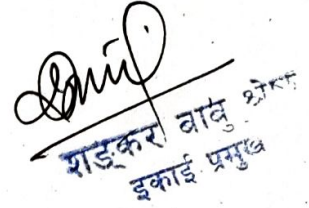 शङ्कर बाबु श्रेष्ठ
इकाई प्रमुख